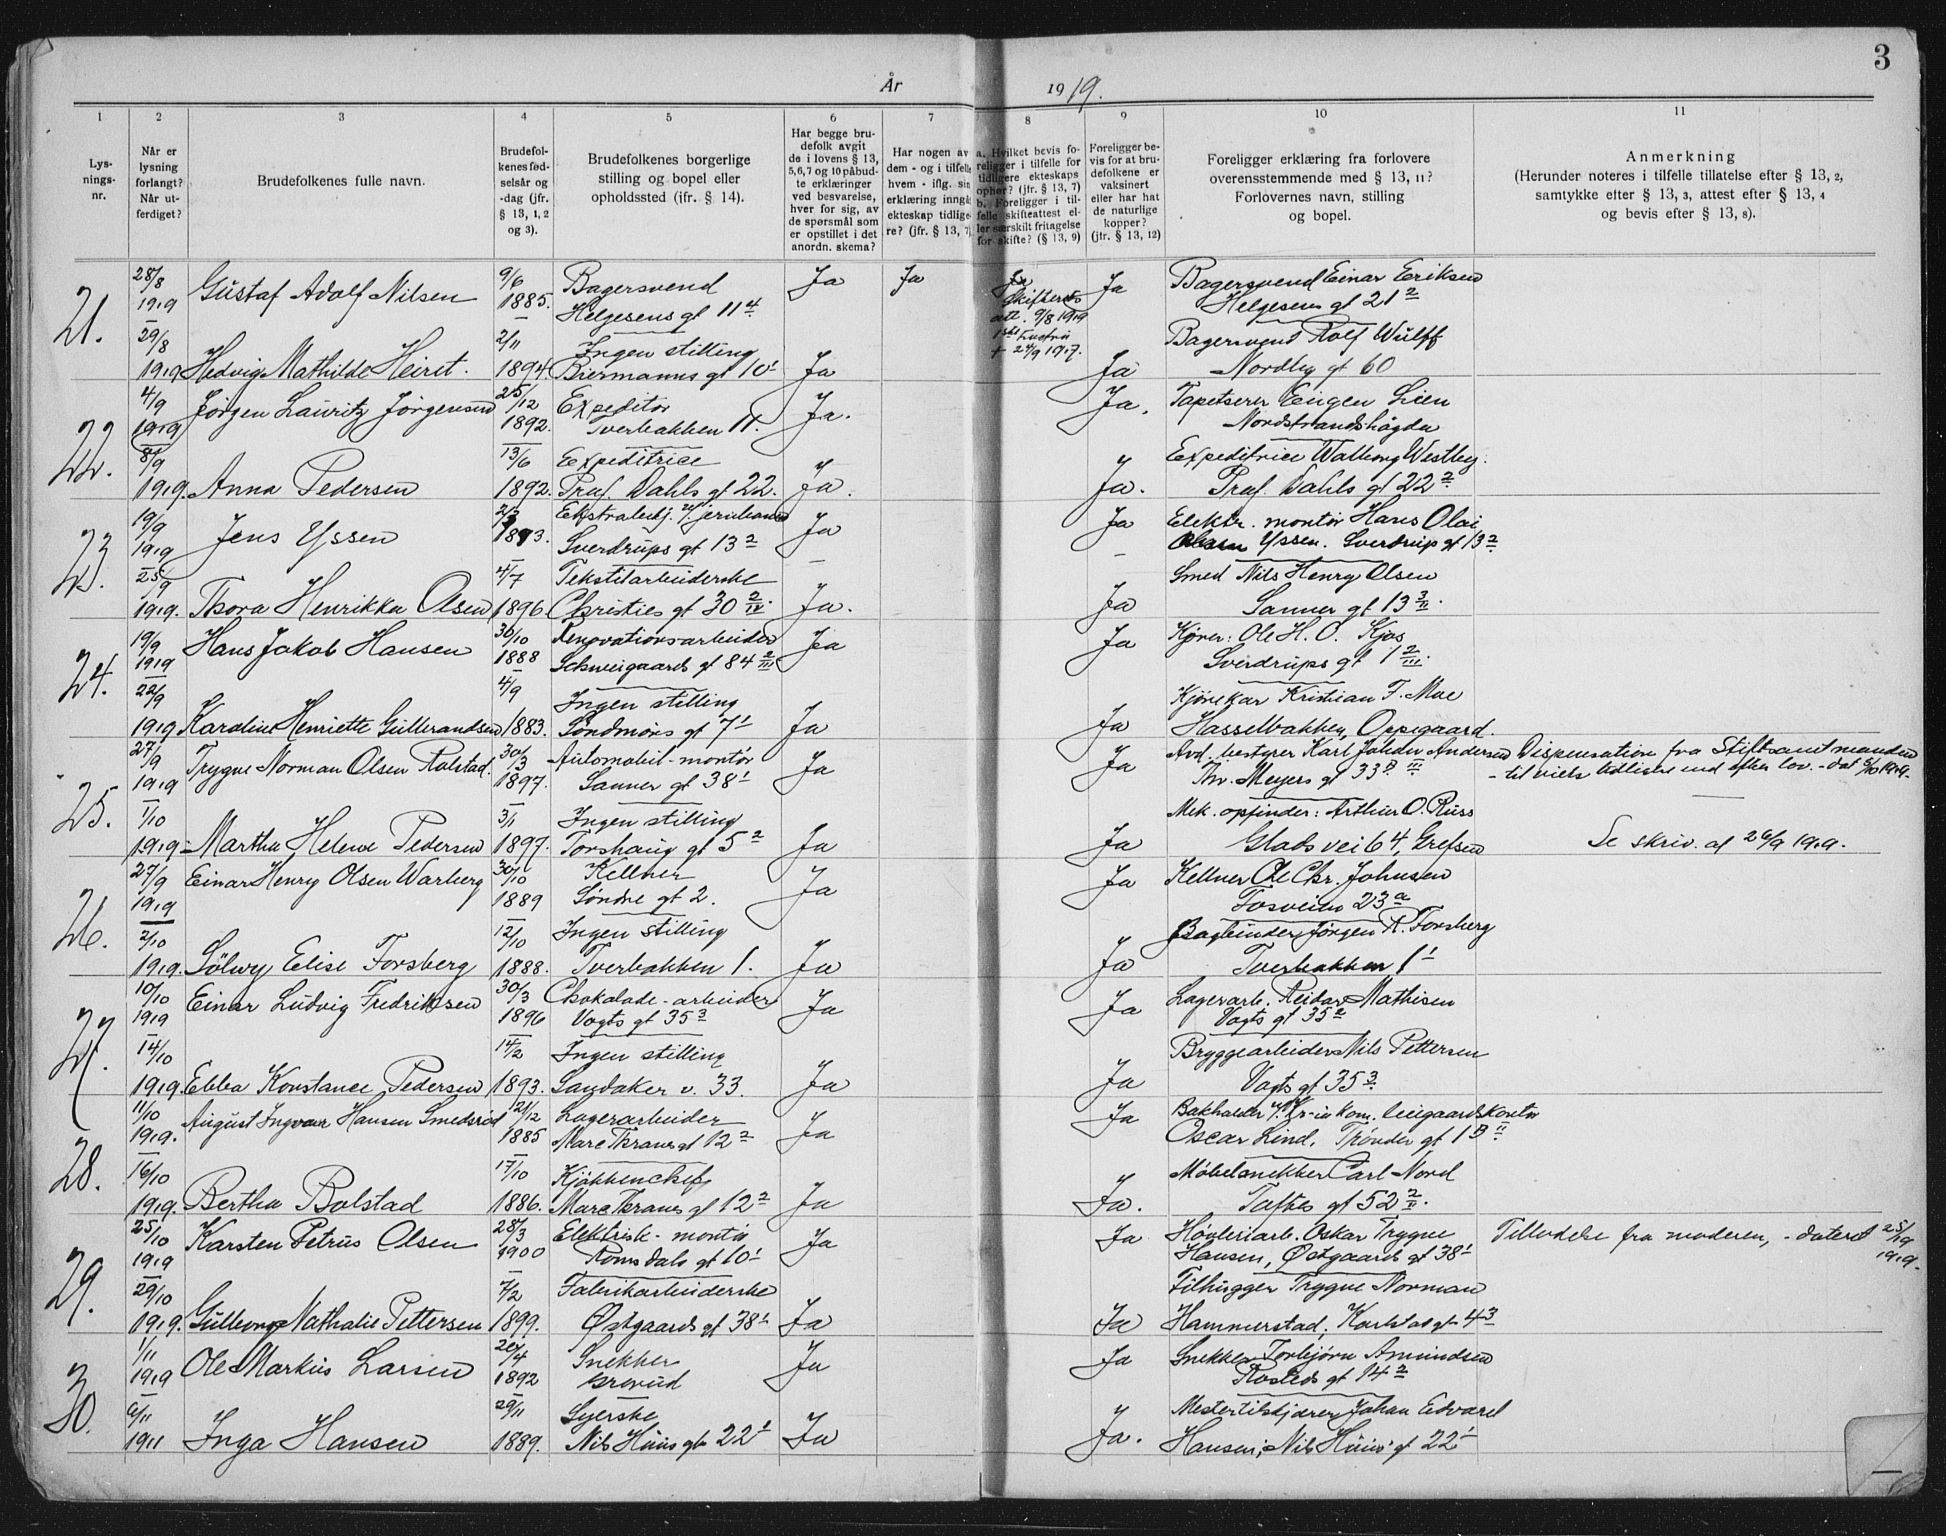 3
År 1919.
1 2 3 4 5 6 7 8 9 10 11
Lysningsnr.
Når er lysning forlangt? Når utferdiget?
Brudefolkenes fulle navn.
Brudefolkenes fødselsår og -dag (jfr. § 13, 1, 2 og 3).
Brudefolkenes borgerlige stilling og bopel eller opholdssted (ifr. § 14).
Har begge brudefolk avgit de i lovens § 13, 5, 6, 7 og 10 påbudte erklæringer ved besvarelse, hver for sig, av de spørsmål som er opstillet i det anordn. skema?
Har nogen av dem - og i tilfelle hvem - iflg. sin erklæring inngå ekteskap tidligere? (jfr. § 13, 7)
a. Hvilket bevis foreligger i tilfelle for tidligere ekteskaps ophør? (jfr. § 13, 7) b. Foreligger i tilfelle skifteattest eller særskilt fritagelse for skifte? (§ 13, 9)
Foreligger bevis for at brudefolkene er vaksinert eller har hat de naturlige kopper? (jfr. § 13, 12)
Foreligger erklæring fra forlovere overensstemmende med § 13, 11? Forlovernes navn, stilling og bopel.
Anmerkning
(Herunder noteres i tilfelle tillatelse efter § 13, 2, samtykke efter § 13, 3, attest efter § 13, 4 og bevis efter § 13, 8).
21. 28/8 1919 Gustaf Adolf Nilsen 9/6 1885. Bagersvend Helgesens gt 11 4. Ja Ja Skifteretts att. 9/8 1919 + 24/9 1917. Ja Bagersvend Einar Eriksen Helgesens gt 21 2
29/8 1919 Hedvig Mathilde Heiret. 2/11 1894. Ingen stilling Biermanns gt 10 1 Ja Ja Bagersvend Rolf Wulff Nordby gt 60
22. 4/9 1919 Jørgen Lauritz Jørgensen 25/12 1892. Expeditør Tverbakken 11. Ja. Ja. Tapetserer Eugen Lien Nordstrandshøgda
8/9 1919. Anna Pedersen 13/6 1892. Expeditrice Prof. Dahls gt 22. Ja. Ja. Expeditrice Walborg Westby. Prof. Dahls gt 22 2.
23. 19/9 1919 Jens Yssen 1893. Sverdrups gt 13 2 Ja Ja Elektr. montør Hans Olai Yssen. Sverdrups gt 13 2
25/9 1919. Thora Henrikka Olsen 4/7 1896. Tekstilarbeiderske Christies gt 30 2/IV. Ja. Ja Smed Nils Henry Olsen Sanner gt 13 3/II.
24. 19/9 1919 Hans Jakob Hansen 30/10 1888 Renovationsarbeider Schweigaards gt 84 2/III Ja Ja Kjører: Ole H. O. Kjos Sverdrups gt 1 2/III.
22/9 1919 Karoline Henriette Gulbrandsen 4/9 1883. Ingen stilling Søndmørs gt 7 1 Ja Ja Kjørekar Kristian F. Moe Hasselbakken, Oppegaard.
25. 27/9 1919 Trygve Norman Olsen Rolstad. 30/3 1897. Automobil-montør Sanner gt 38 1 Ja Ja Avd. bestyrer Karl Johder Andersen Thv. Meyers gt 33 B III Dispensation fra Stiftsamtmanden - til vielse tidligere end efter lov. - dat 6/10 1919.
1/10 1919 Martha Helene Pedersen 3/1 1897. Ingen stilling Torshaug gt 5 2 Ja Ja Mek. opfinder: Arthur O. Russ Glads vei 64, Grefsen Se skriv. af 26/9 1919.
26. 27/9 1919 Einar Henry Olsen Warberg 30/10 1889 Kellner Søndre gt 2. Ja Ja Kellner Ole Chr. Johnsen Fosveien 23 a
2/10 1919. Sölwy Elise Forsberg 12/10 1888. Ingen stilling Tverbakken 1. Ja Ja Bogbinder Jørgen R. Forsberg Tverbakken 1 1
27. 10/10 1919 Einar Ludvig Fredriksen 30/3 1896 Chokolade-arbeider Vogts gt 35 3 Ja Ja Lagerarb. Reidar Mathisen Vogts gt 35 2
14/10 1919. Ebba Konstance Pedersen 14/2 1893. Ingen stilling Sandaker v. 33. Ja Ja Bryggearbeider Nils Pettersen Vogts gt 35 3.
28. 11/10 1919. August Ingvar Hansen Smedsrød 21/12 1885 Lagerarbeider Marc. Thranes gt 12 2 Ja Ja Bokholder v. Kr-ia kom. leiegaardskontor Oscar Lind, Trönder gt 1 B II.
16/10 1919. Bertha Bolstad 17/10 1886. Kjøkkenchef Marc Thranes gt 12 2 Ja Ja. Møbelsnekker Carl Nord Toftes gt 52 2/II.
29. 25/10 1919 Karsten Petrus Olsen 28/3 1900 Elektrisk-montør Romsdals gt 10 1 Ja Ja Høvleriarb. Oskar Trygve Hansen, Østgaards gt 38 1 Tilladelse fra moderen, - dateret 25/10 1919.
29/10 1919. Gulborg Nathalie Pettersen 7/2 1899. Fabrikarbeiderske Østgaards gt 38 1 Ja Ja Filhugger Trygve Norman Hammerstad, Karlstadgt 4 3
30. 1/11 1919 Ole Markus Larsen 20/4 1892 Snekker Ja Ja Snekker Torbjørn Amundsen Rosteds gt 14 2
6/11 1911 Inga Hansen 29/11 1889. Syerske Nils Huus gt 22 1 Ja Ja. Mestertilskjærer Johan Edvard Hansen; Nils Huus' gt 22 1